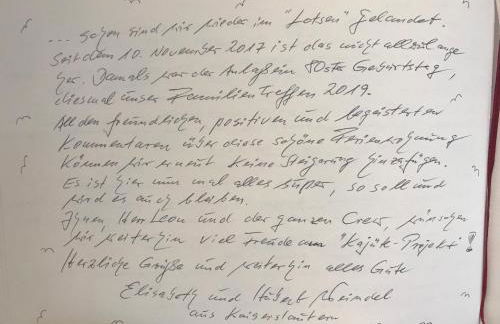 ... schon sind wir wieder im "Lotsen" gelandet.
Seit dem 10. November 2017 ist das nicht allzu lange
her. Damals war der Anlaß ein 80ster Geburtstag,
diesmal unser Familientreffen 2019.
All den freundlichen, positiven und begeisterten
Kommentaren über diese schöne Ferienwohnung
können wir erneut keine Steigerung hinzufügen.
Es ist hier nun mal alles super, so soll und
wird es auch bleiben.
Ihnen, Herr Leon und der ganzen Crew, wünschen
wir weiterhin viel Freude am "Kajüt-Projekt"!
Herzliche Grüße und weiterhin alles Gute
Elisabeth und Hubert
aus Kaiserslautern